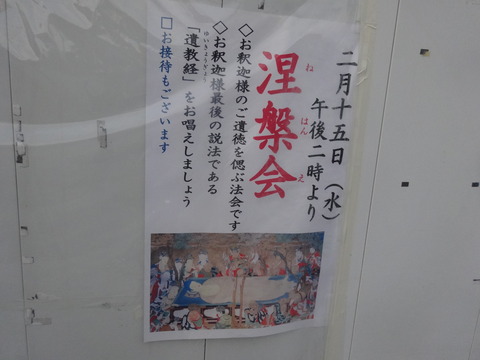 二月十五日（水）
午後二時より
涅槃会
ねはんえ
◇お釈迦様のご遺徳を偲ぶ法会です
◇お釈迦様最後の説法である
「遺教経」をお唱えしましょう
ゆいきょうぎょう
□お接待もございます